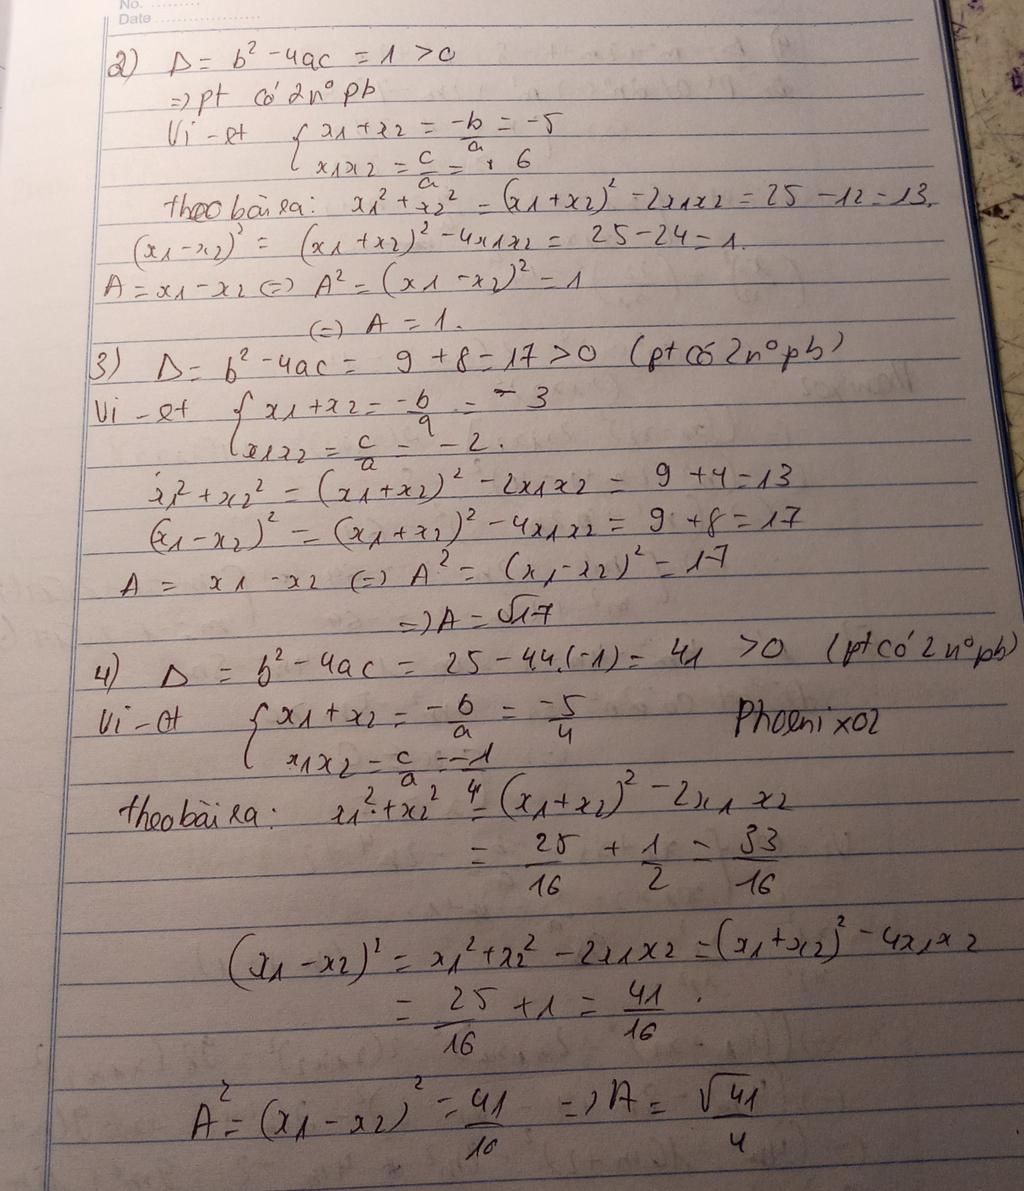 No. .........
Date ...............
2) Δ = b² - 4ac = 1 > 0
=> pt có 2 n° pb
Vi-et { x1 + x2 = -b/a = -5
x1x2 = c/a = + 6
theo bài ra: x1² + x2² = (x1 + x2)² - 2x1x2 = 25 - 12 = 13.
(x1 - x2)² = (x1 + x2)² - 4x1x2 = 25 - 24 = 1.
A = x1 - x2 (=) A² = (x1 - x2)² = 1
(=) A = 1.
3) Δ = b² - 4ac = 9 + 8 = 17 > 0 (pt có 2 n° pb)
Vi-et { x1 + x2 = -b/a = - 3
x1x2 = c/a = - 2.
x1² + x2² = (x1 + x2)² - 2x1x2 = 9 + 4 = 13
(x1 - x2)² = (x1 + x2)² - 4x1x2 = 9 + 8 = 17
A = x1 - x2 (=) A² = (x1 - x2)² = 17
=) A = √17
4) Δ = b² - 4ac = 25 - 44.(-1) = 41 > 0 (pt có 2 n° pb)
Vi-et { x1 + x2 = -b/a = -5/4 Phoenix02
x1x2 = c/a = -1/4
theo bài ra: x1² + x2² = (x1 + x2)² - 2x1 x2
= 25/16 + 1/2 = 33/16
(x1 - x2)² = x1² + x2² - 2x1x2 = (x1 + x2)² - 4x1x2
= 25/16 + 1 = 41/16.
A² = (x1 - x2)² = 41/16 =) A = √41/4